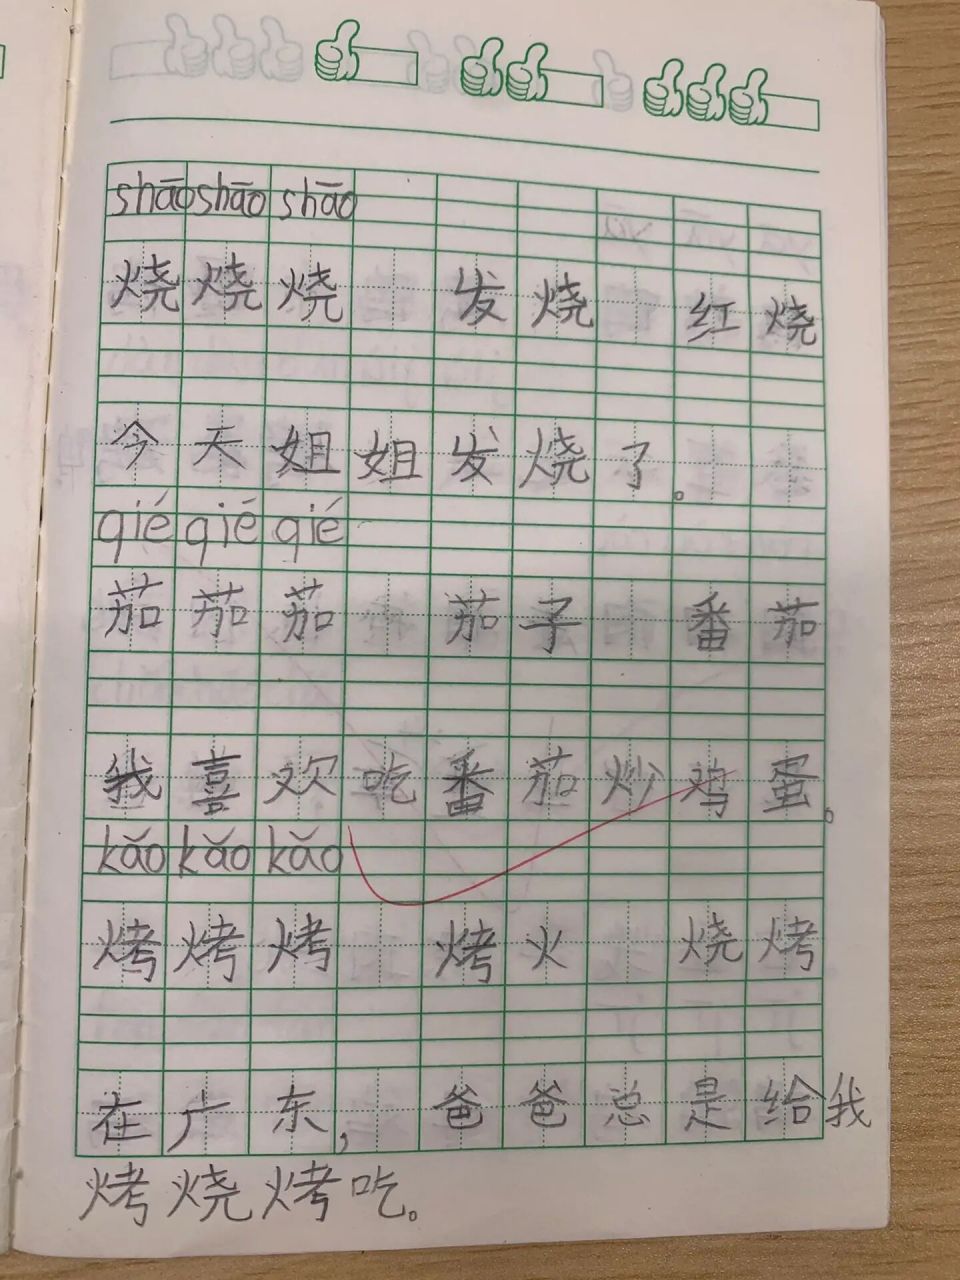 shāo shāo shāo
烧 烧 烧 发 烧 红 烧
今 天 姐 姐 发 烧 了。
qié qié qié
茄 茄 茄 茄 子 番 茄
我 喜 欢 吃 番 茄 炒 鸡 蛋。
kǎo kǎo kǎo
烤 烤 烤 烤 火 烧 烤
在 广 东, 爸 爸 总 是 给 我
烤 烧 烤 吃。